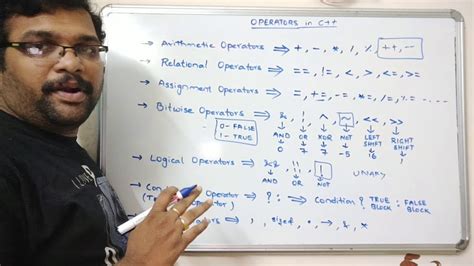 OPERATORS in C++
→ Arithmetic Operators ⇒ +, -, *, /, %, ++, --
→ Relational Operators ⇒ ==, !=, <, >, <=, >=
→ Assignment Operators ⇒ =, +=, -=, *=, /=, %= ----
→ Bitwise Operators ⇒ &, |, ^, ~, <<, >>
0- FALSE
1- TRUE
AND OR XOR NOT LEFT SHIFT RIGHT SHIFT
0 7 7 -5 16
→ Logical Operators ⇒ &&, ||, !
UNARY
AND OR NOT
Operator ⇒ ? : ⇒ Condition ? TRUE BLOCK : FALSE BLOCK
⇒ , sizeof, •, →, &, *